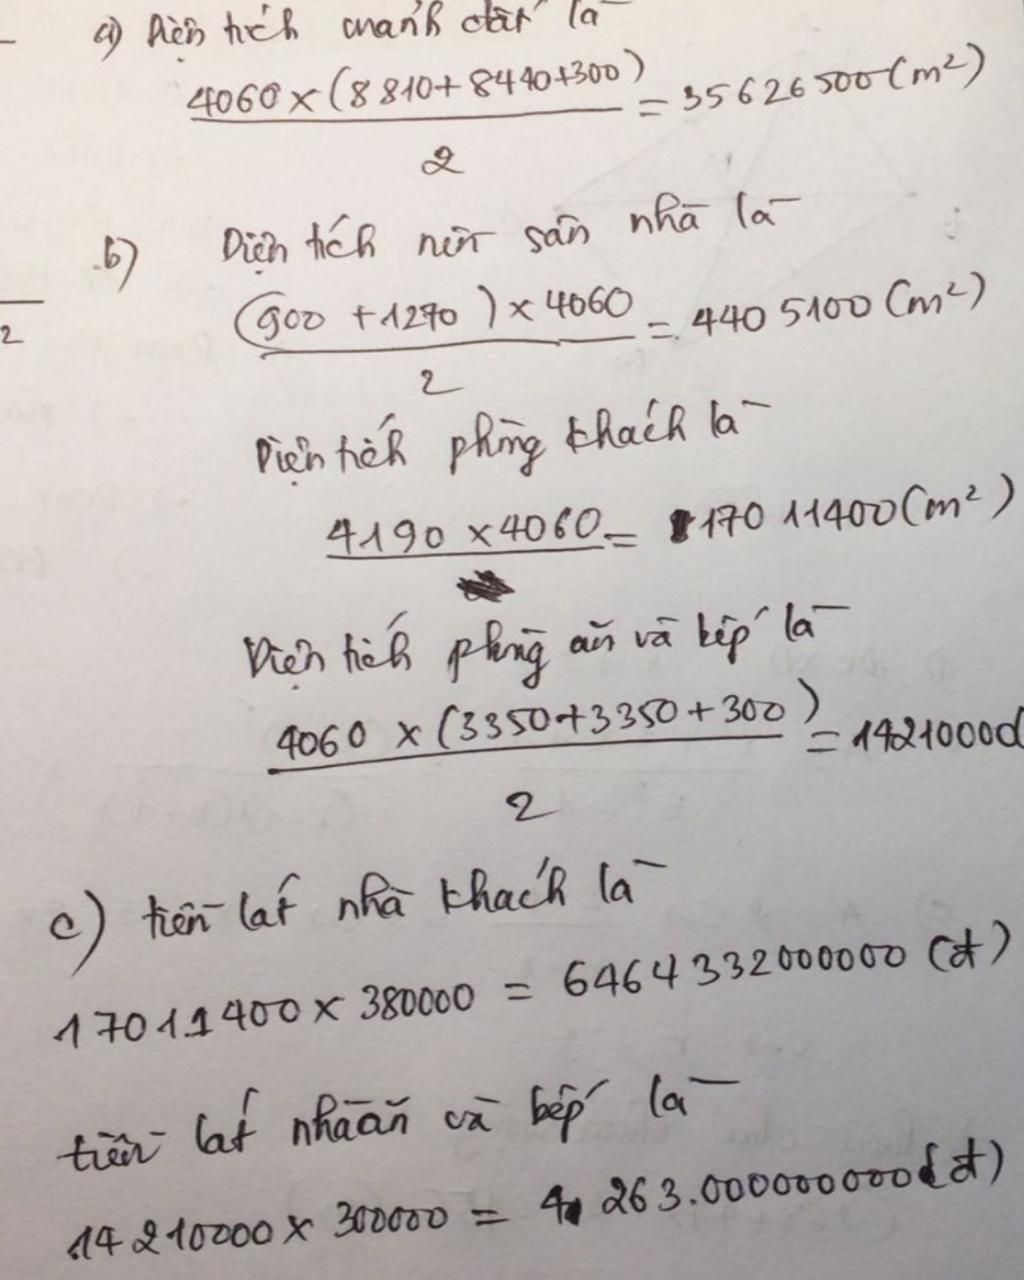 a) Diện tích mảnh đất là
4060 x (8810 + 8440 + 300) = 35626500 (m²)
2
b) Diện tích nửa sân nhà là
2
(900 + 1270) x 4060 = 4405100 (m²)
2
Diện tích phòng khách là
4190 x 4060 = 17011400 (m²)
Diện tích phòng ăn và bếp là
4060 x (3350 + 3350 + 300) = 14210000
2
c) tiền lát nhà khách là
17011400 x 380000 = 6464332000000 (đ)
tiền lát nhà ăn và bếp là
14210000 x 300000 = 4263.000000000 (đ)